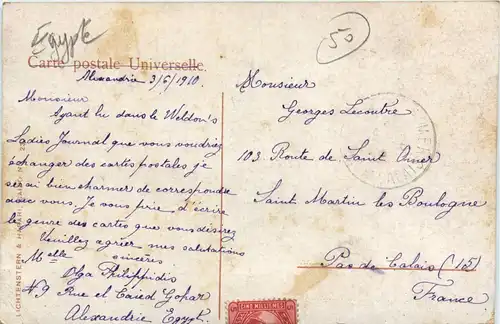 Egypte
50
Carte postale Universelle
Alexandrie 3/6/1910
Monsieur
Ayant lu dans le Weldon's
Ladies Journal que vous voudriez
échanger des cartes postales je
serai bien charmer de correspondre
avec vous. Je vous prie d'écrire
le genre des cartes que vous désirez
Veuillez agréer mes salutations
sincères
Melle
Olga Philippidis
No 9 Rue el Caied Gohar
Alexandrie Egypt.
Monsieur
Georges Lecoutre
103 Route de Saint Omer
Saint Martin les Boulogne
Pas de Calais (15)
France
LICHTENSTERN & HARARI, CAIRO